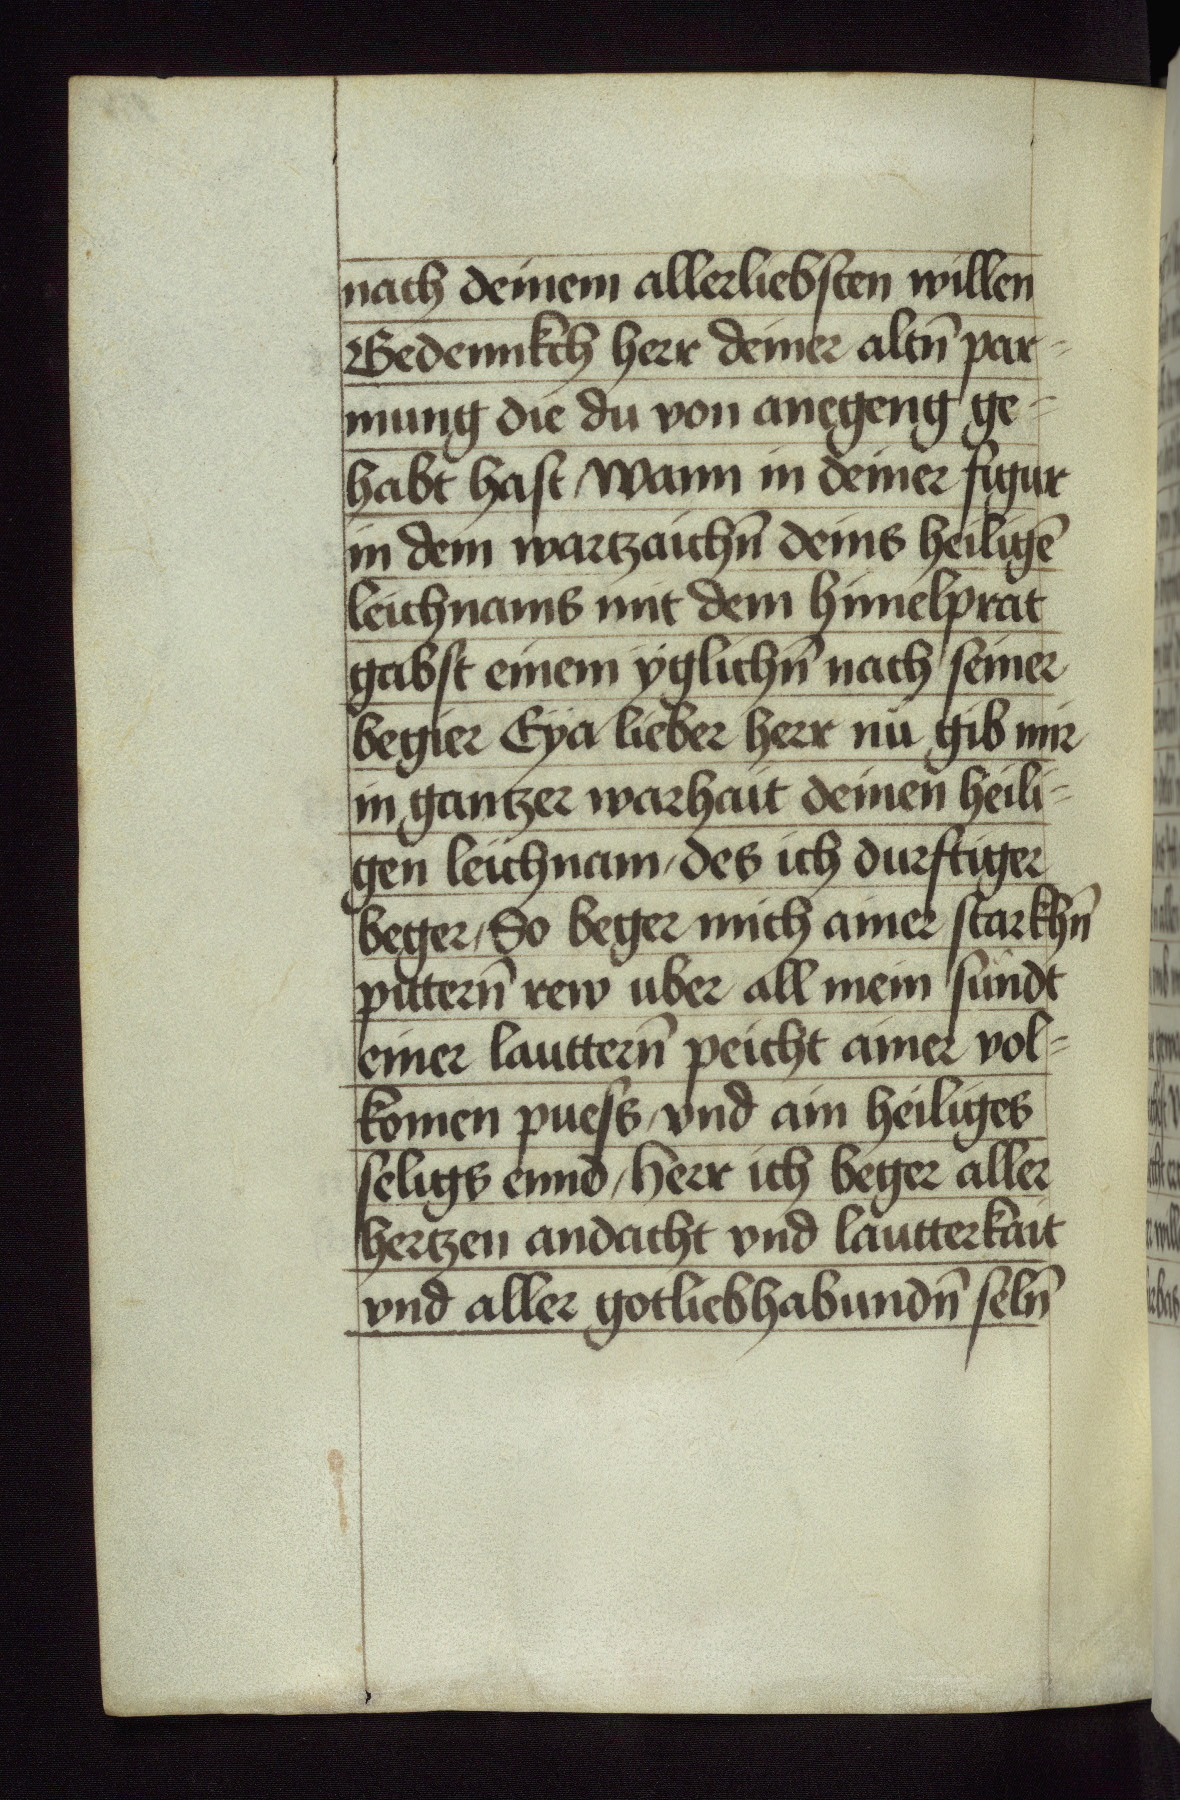 nach deinem allerliebsten willen
Gedennkch herr deiner altn̄ par=
mung die du von anegeng ge=
habt hast / Wann in deiner figur
in dem wartzaichn̄ deins heiligē
leichnams mit dem himelprat
gabst einem ÿglichn̄ nach seiner
begier Eÿa lieber herr nu gib mir
in gantzer warhait deinen heili=
gen leichnam / des ich durftiger
beger / So beger mich ainer starkhn̄
pittern̄ rew uber all mein sündt
einer lauttern̄ peicht ainer vol=
komen puess / vnd ain heiliges
seligs ennd / Herr ich beger aller
hertzen andacht vnd lautterkait
vnd aller gotliebhabundn̄ seln̄